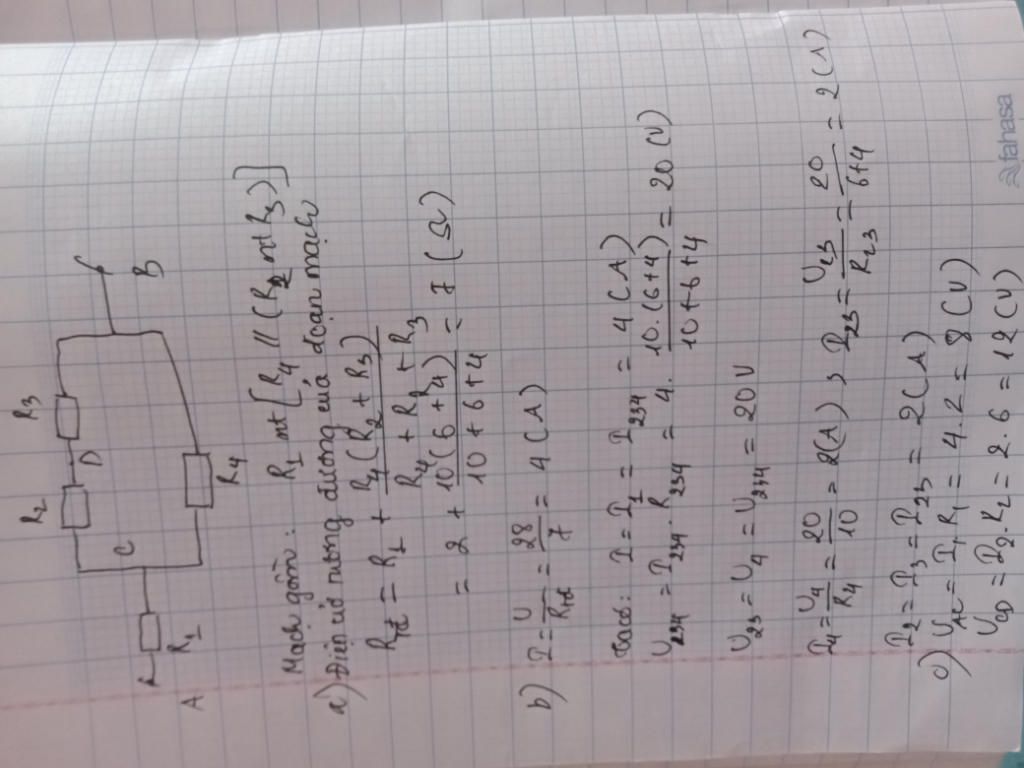 R₂ D R₃
A R₁ C B
R₄
Mạch gồm: R₁ nt [R₄ // (R₂ nt R₃)]
a) Điện trở tương đương của đoạn mạch
Rtđ = R₁ + R₄(R₂ + R₃) / R₄ + R₂ + R₃
= 2 + 10(6+4) / 10+6+4 = 7 (Ω)
b) I = U / Rtđ = 28 / 7 = 4 (A)
I = I₁ = I₂₃₄ = 4 (A)
U₂₃₄ = I₂₃₄ . R₂₃₄ = 4 . 10.(6+4) / 10+6+4 = 20 (V)
U₂₃ = U₄ = U₂₃₄ = 20V
I₄ = U₄ / R₄ = 20 / 10 = 2(A) ; I₂₃ = U₂₃ / R₂₃ = 20 / 6+4 = 2 (A)
I₂ = I₃ = I₂₃ = 2 (A)
c) U_AC = I₁.R₁ = 4.2 = 8 (V)
U_CD = I₂.R₂ = 2.6 = 12 (V)
fahasa